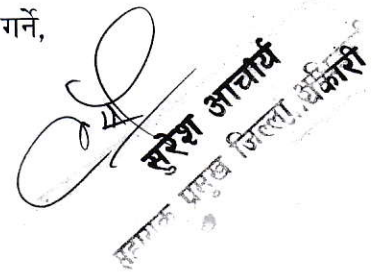 गर्ने,
सुरेश आचार्य
सहायक प्रमुख जिल्ला अधिकारी